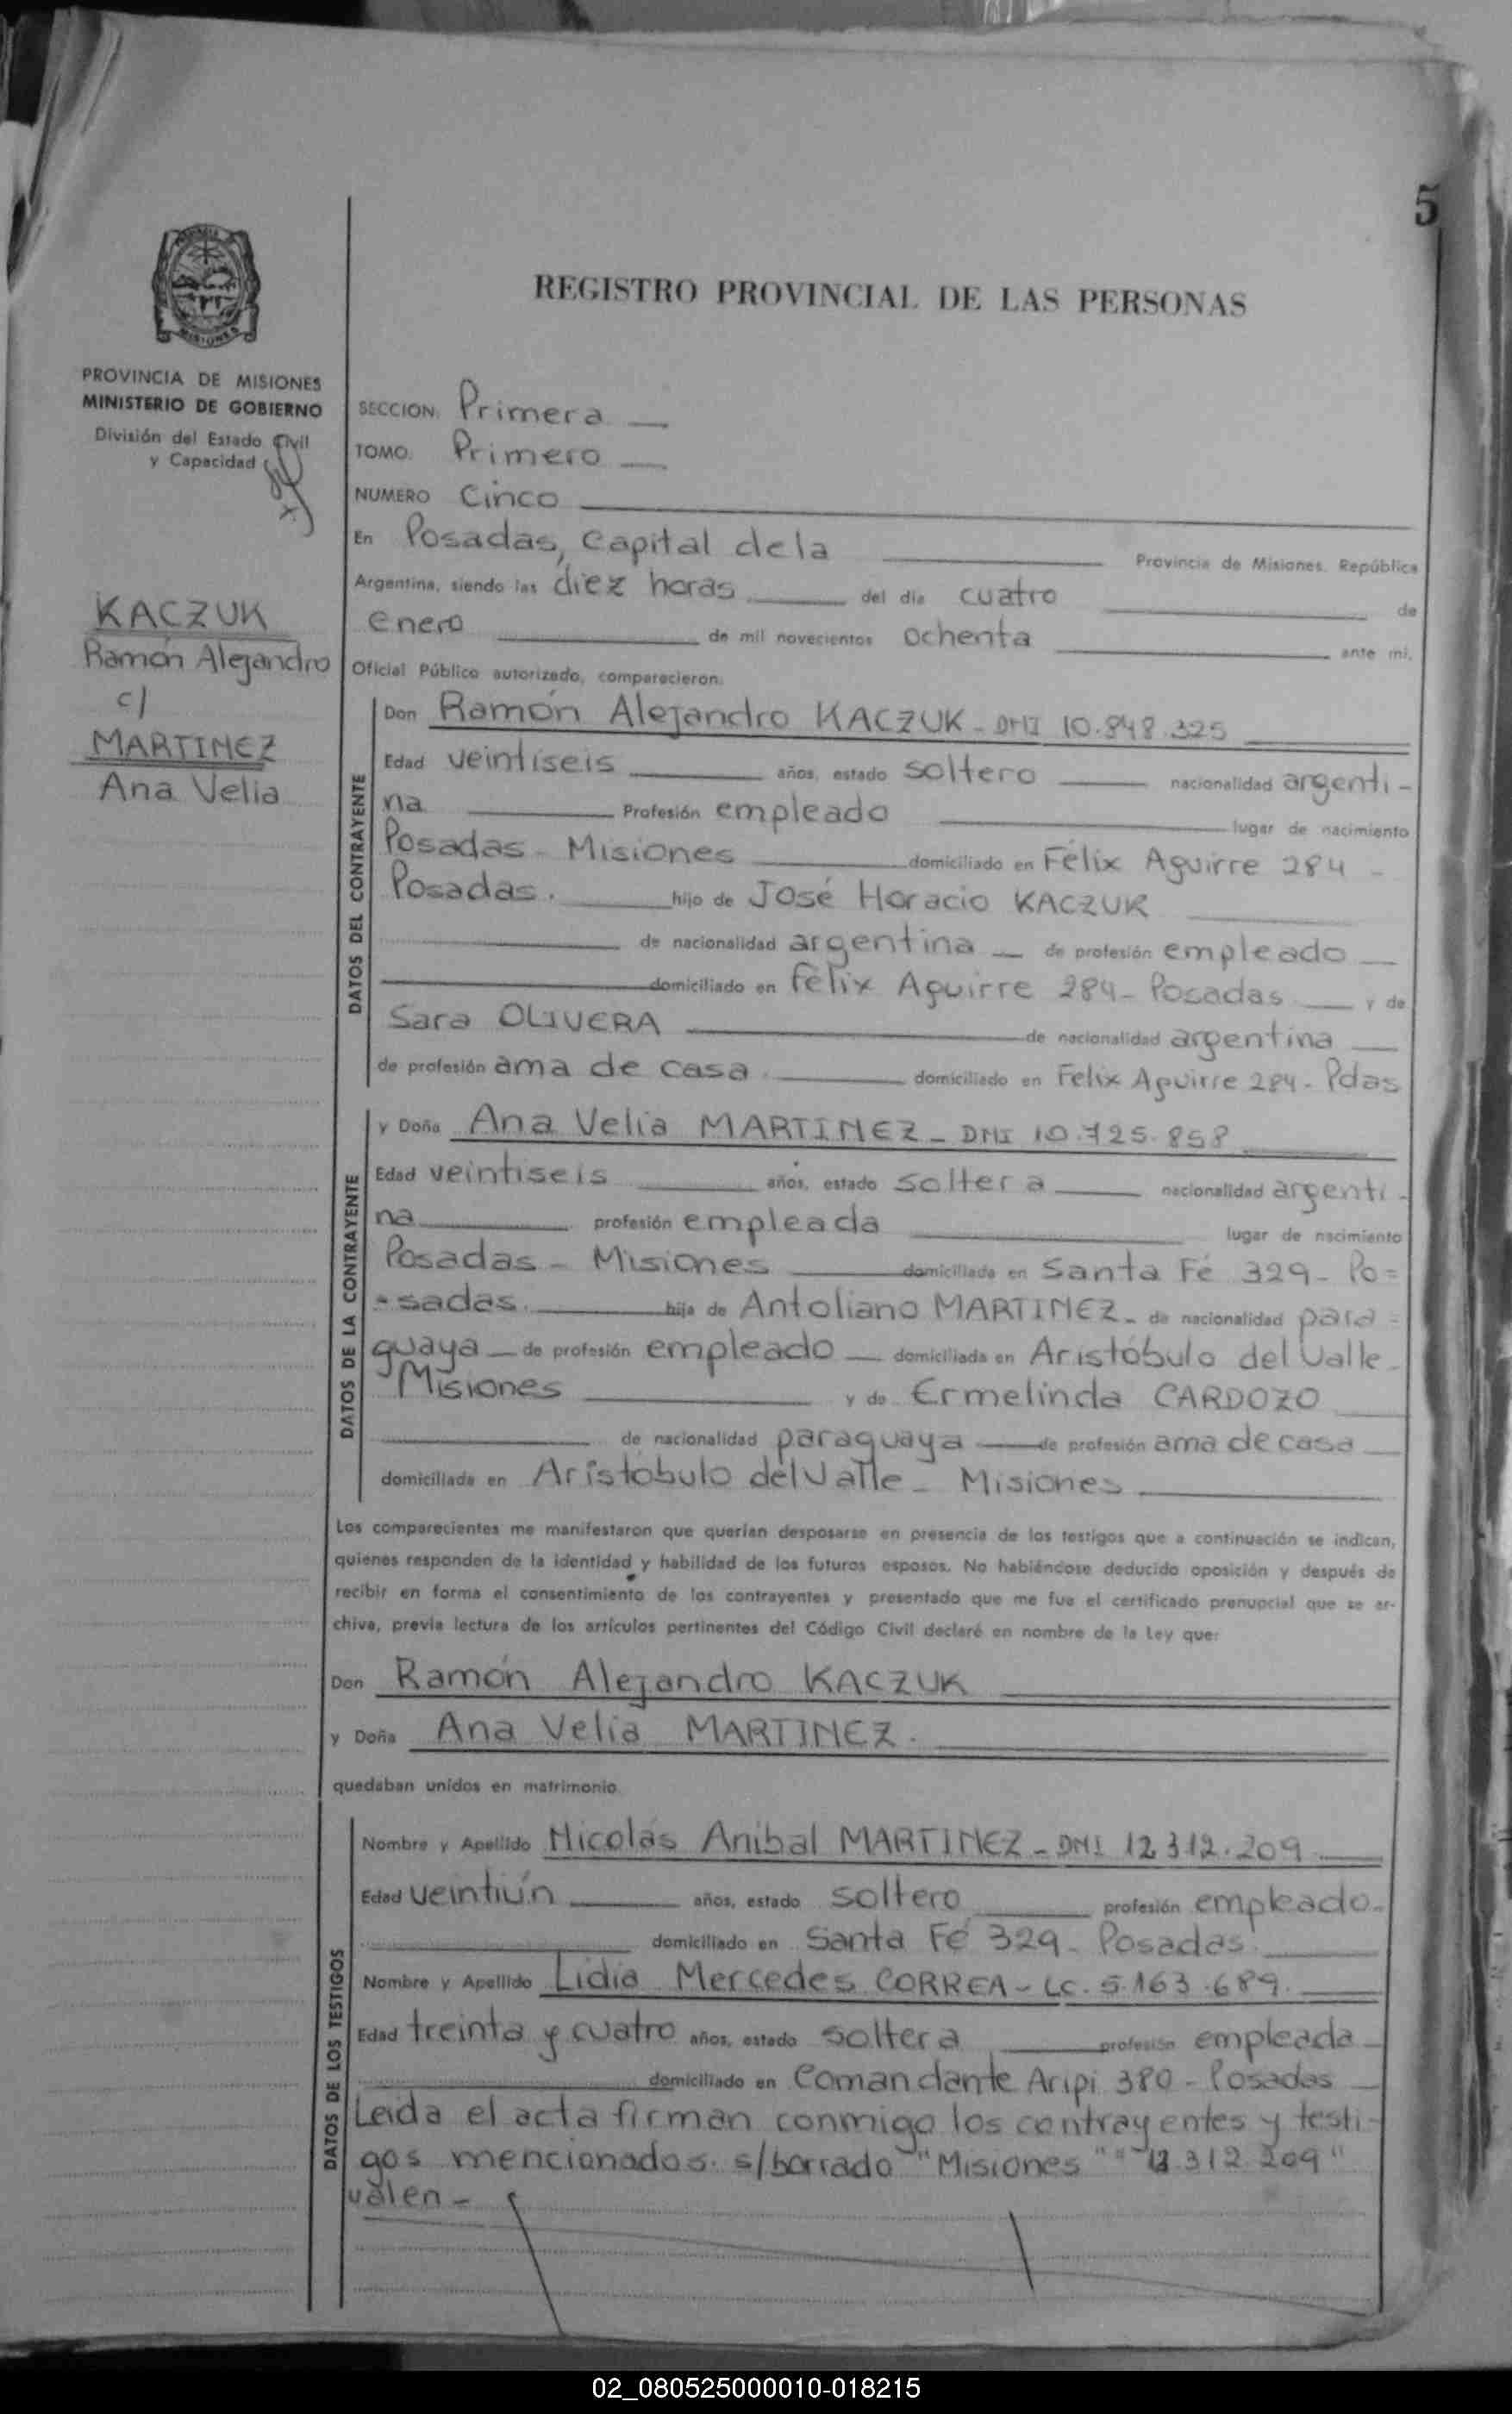 5
REGISTRO PROVINCIAL DE LAS PERSONAS
PROVINCIA DE MISIONES
MINISTERIO DE GOBIERNO
División del Estado Civil
y Capacidad
KACZUK
Ramón Alejandro
c/
MARTINEZ
Ana Velia
SECCION Primera
TOMO Primero
NUMERO Cinco
En Posadas, Capital de la Provincia de Misiones, República
Argentina, siendo las diez horas del día cuatro de
enero de mil novecientos ochenta ante mi,
Oficial Público autorizado, comparecieron:
DATOS DEL CONTRAYENTE
Don Ramón Alejandro KACZUK - DNI 10.848.325
Edad veintiseis años, estado soltero nacionalidad argenti-
na Profesión empleado lugar de nacimiento
Posadas - Misiones domiciliado en Félix Aguirre 284 -
Posadas. hijo de José Horacio KACZUK
de nacionalidad argentina de profesión empleado
domiciliado en Félix Aguirre 284 - Posadas y de
Sara OLIVERA de nacionalidad argentina
de profesión ama de casa domiciliado en Felix Aguirre 284 - Pdas
DATOS DE LA CONTRAYENTE
y Doña Ana Velia MARTINEZ - DNI 10.725.858
Edad veintiseis años, estado soltera nacionalidad argenti-
na profesión empleada lugar de nacimiento
Posadas - Misiones domiciliada en Santa Fé 329 - Po=
=sadas. hija de Antoliano MARTINEZ - de nacionalidad para=
guaya de profesión empleado domiciliada en Aristóbulo del Valle
Misiones y de Ermelinda CARDOZO
de nacionalidad paraguaya de profesión ama de casa
domiciliada en Aristóbulo del Valle - Misiones
Los comparecientes me manifestaron que querían desposarse en presencia de los testigos que a continuación se indican,
quienes responden de la identidad y habilidad de los futuros esposos. No habiéndose deducido oposición y después de
recibir en forma el consentimiento de los contrayentes y presentado que me fue el certificado prenupcial que se ar-
chiva, previa lectura de los artículos pertinentes del Código Civil declaré en nombre de la Ley que:
Don Ramón Alejandro KACZUK
y Doña Ana Velia MARTINEZ.
quedaban unidos en matrimonio.
DATOS DE LOS TESTIGOS
Nombre y Apellido Nicolás Anibal MARTINEZ - DNI 12.312.209
Edad veintiún años, estado soltero profesión empleado.
domiciliado en Santa Fé 329 - Posadas.
Nombre y Apellido Lidia Mercedes CORREA - LC. 5.163.689.
Edad treinta y cuatro años, estado soltera profesión empleada
domiciliado en Comandante Aripi 380 - Posadas
Leida el acta firman conmigo los contrayentes y testi-
gos mencionados. s/borrado "Misiones" "12.312.209"
valen -
02_080525000010-018215